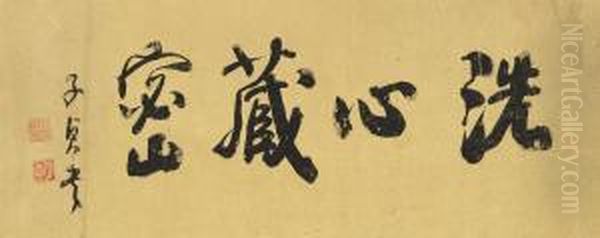 洗心藏密
子貞書
NiceArtGallery.com